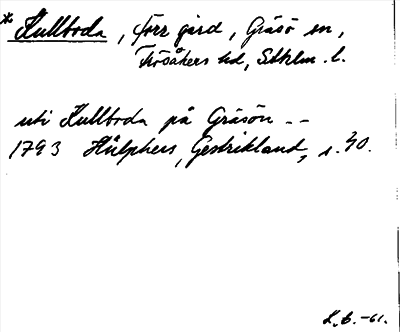 * Kullboda, förr gård, Gräsö sn,
Frösåkers hd, Sthlm. l.
uti Kullboda på Gräsön --
1793 Hülphers, Gestrikland, s. 40.
L.B. -61.